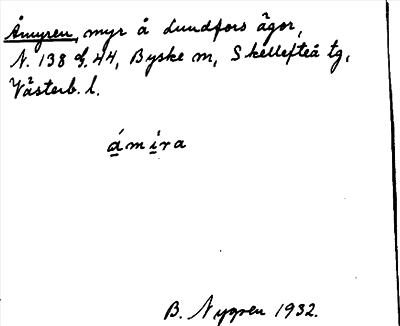 Åmyren, myr å Lundfors ägor,
N. 138 g. 44, Byske m, Skellefteå tg,
Västerb. l.
ámira
B. Nygren 1932.